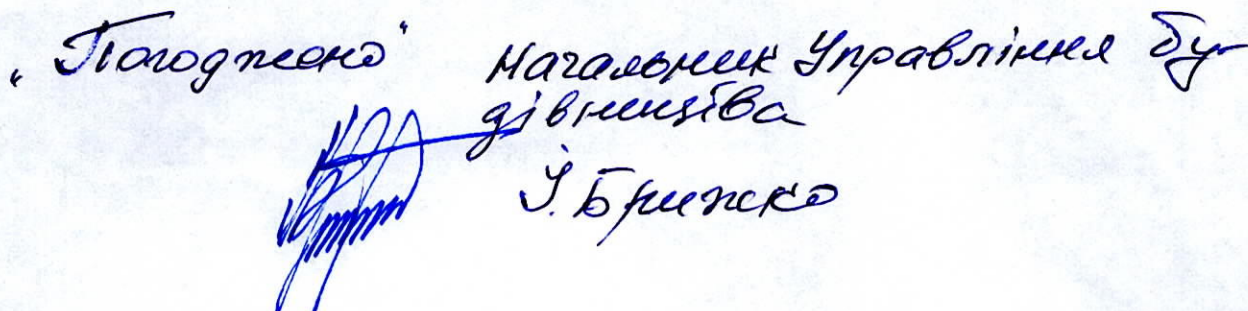 „Погоджено" Начальник Управління бу-
дівництва
І. Брижко